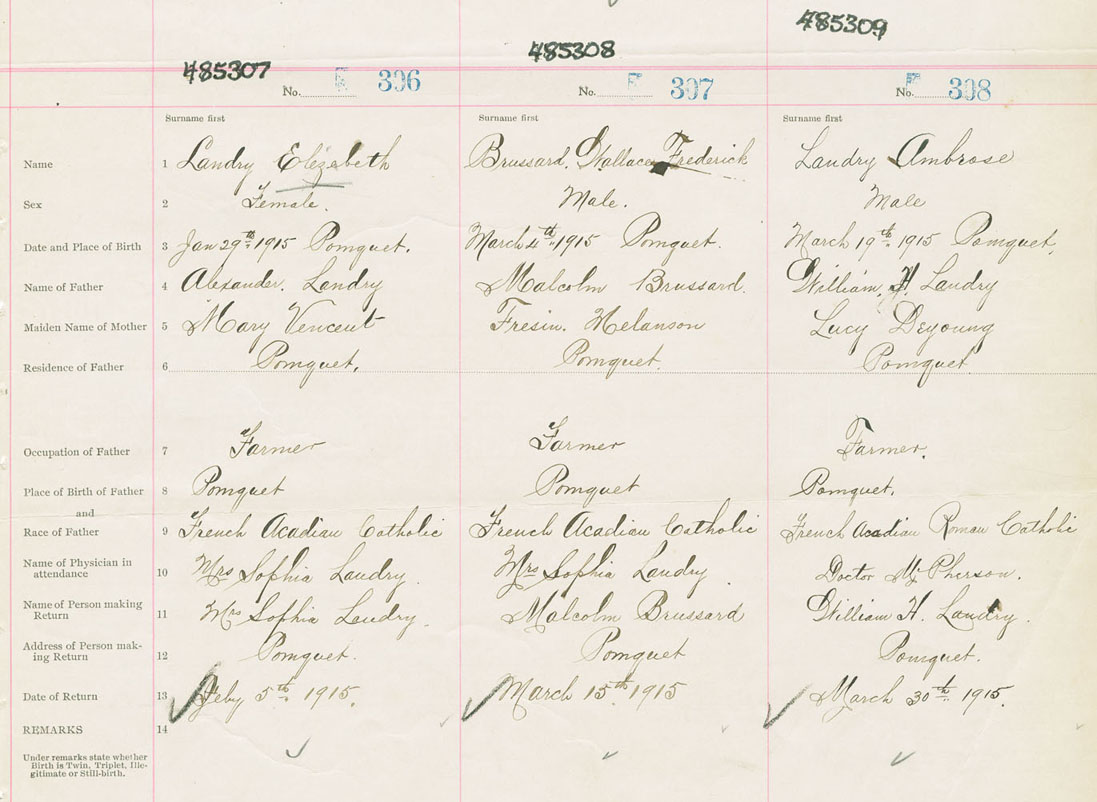 485307 485308 485309
No. E 306 No. E 307 No. E 308
Surname first Surname first Surname first
Name 1 Landry Elizabeth Brussard, Wallace Frederick Landry Ambrose
Sex 2 Female. Male. Male
Date and Place of Birth 3 Jan 29th 1915 Pomquet. March 4th 1915 Pomquet. March 19th 1915 Pomquet.
Name of Father 4 Alexander. Landry Malcolm Brussard. William, H. Landry
Maiden Name of Mother 5 Mary Vencent Fresin. Melanson Lucy Deyoung
Residence of Father 6 Pomquet. Pomquet. Pomquet.
Occupation of Father 7 Farmer Farmer Farmer.
Place of Birth of Father 8 Pomquet Pomquet Pomquet.
and
Race of Father 9 French Acadian Catholic French Acadian Catholic French Acadian Roman Catholic
Name of Physician in
attendance 10 Mrs Sophia Landry. Mrs Sophia Landry. Doctor McPherson.
Name of Person making
Return 11 Mrs Sophia Landry. Malcolm Brussard William H. Landry.
Address of Person mak-
ing Return 12 Pomquet. Pomquet Pomquet.
Date of Return 13 Feby 5th 1915. March 15th 1915 March 30th 1915.
REMARKS 14
Under remarks state whether
Birth is Twin, Triplet, Ille-
gitimate or Still-birth.